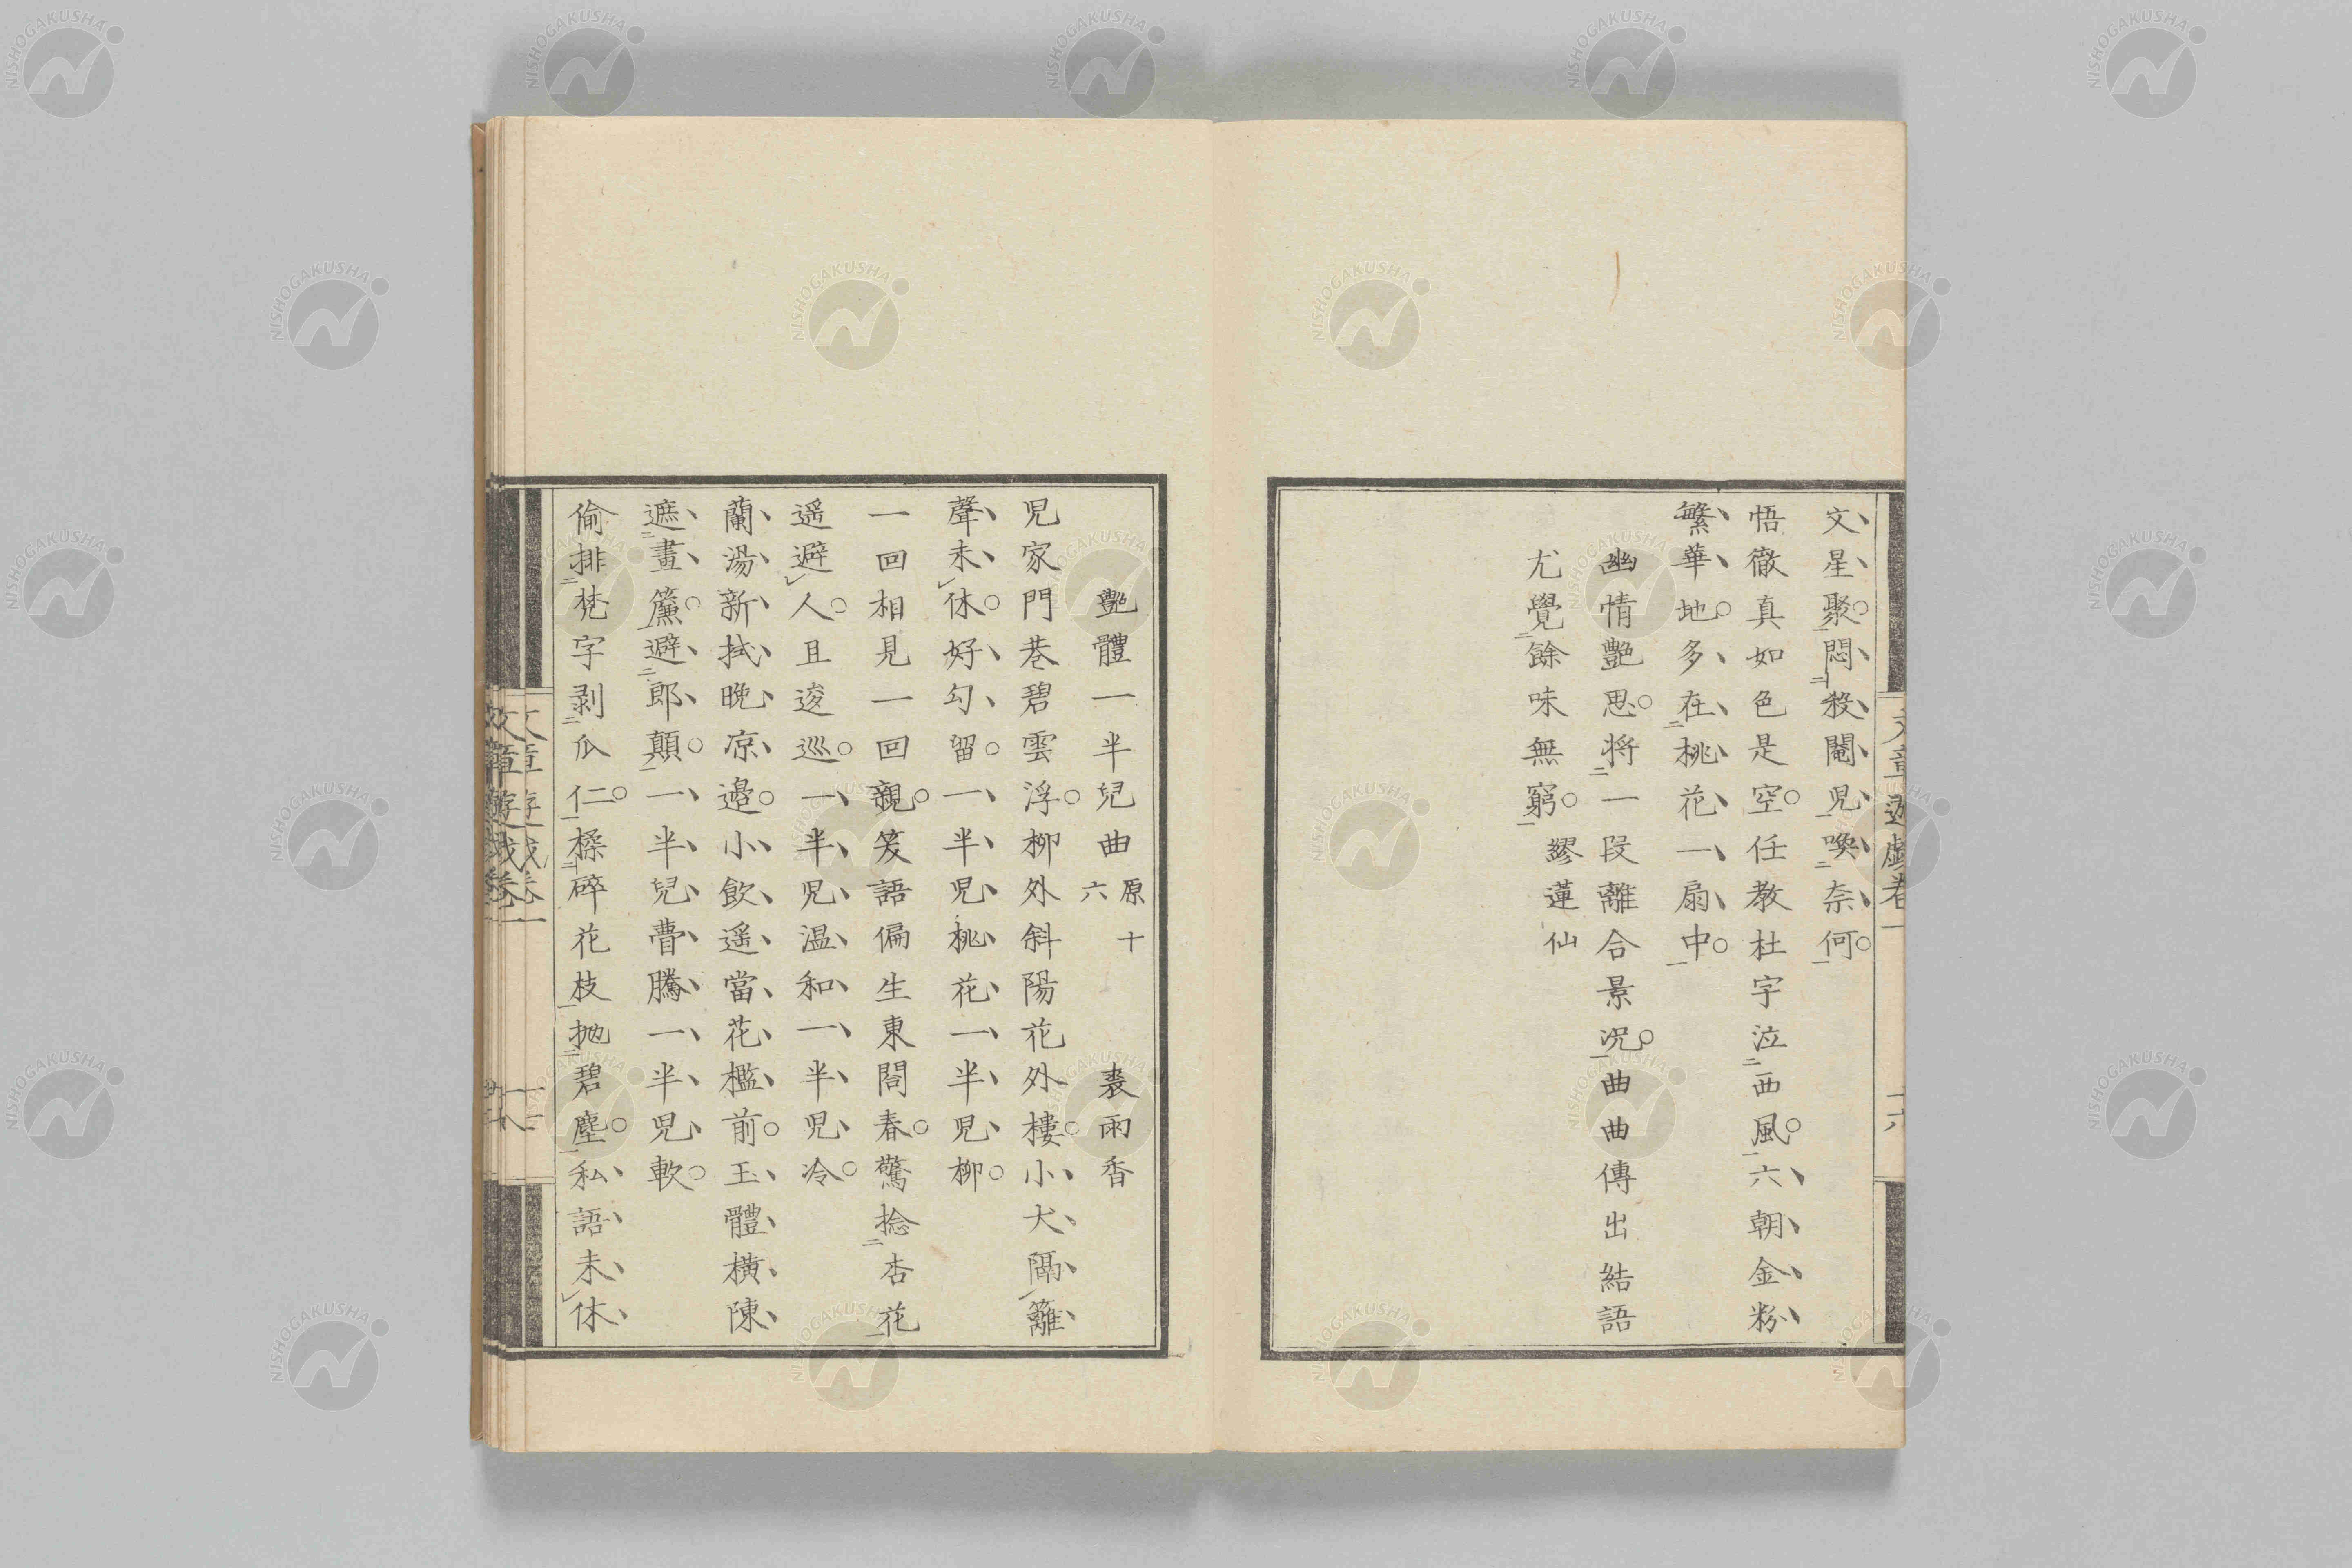 文星聚悶殺閹児喚奈何
悟徹真如色是空任教杜宇泣西風六朝金粉
繁華地多在桃花一扇中
幽情艷思將一段離合景况曲曲傳出結語
尤覺餘味無窮 繆蓮仙
艷體一半兒曲 原十六 袁雨香
児家門巷碧雲浮柳外斜陽花外樓小犬隔籬
聲未休好勾留一半児桃花一半児柳
一回相見一回親笑語偏生東閤春驚捻杏花
遥避人且逡巡一半児温和一半児冷
蘭湯新拭晚凉邉小飲遥當花檻前玉體橫陳
遮畫簾避郎顛一半兒瞢騰一半児軟
偷排梵字剥瓜仁檪碎花枝抛碧塵私語未休
文章遊戯卷一
NISHOGAKUSHA